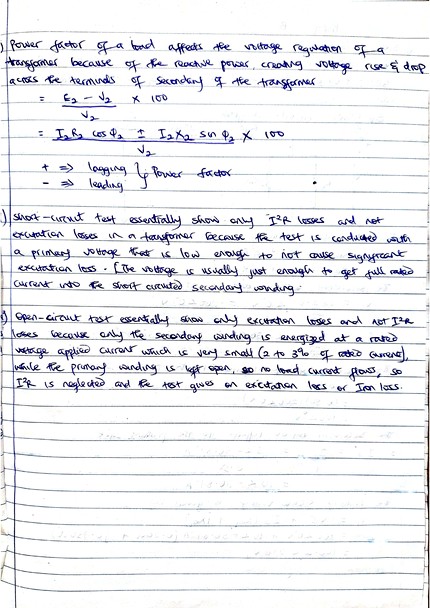 ) Power factor of a load affects the voltage regulation of a
transformer because of the reactive power, creating voltage rise & drop
across the terminals of secondary of the transformer
= E₂ - V₂ / V₂ × 100
= I₂R₂ cos Φ₂ ± I₂X₂ sin Φ₂ / V₂ × 100
+ => lagging } Power factor
- => leading
) Short-circuit test essentially show only I²R losses and not
excitation losses in a transformer because the test is conducted with
a primary voltage that is low enough to not cause significant
excitation loss. [The voltage is usually just enough to get full rated
current into the short circuited secondary winding.
) Open-circuit test essentially show only excitation losses and not I²R
losses because only the secondary winding is energized at a rated
voltage applied current which is very small (2 to 3% of rated current),
while the primary winding is left open, so no load current flows, so
I²R is neglected and the test gives an excitation loss or Iron loss.